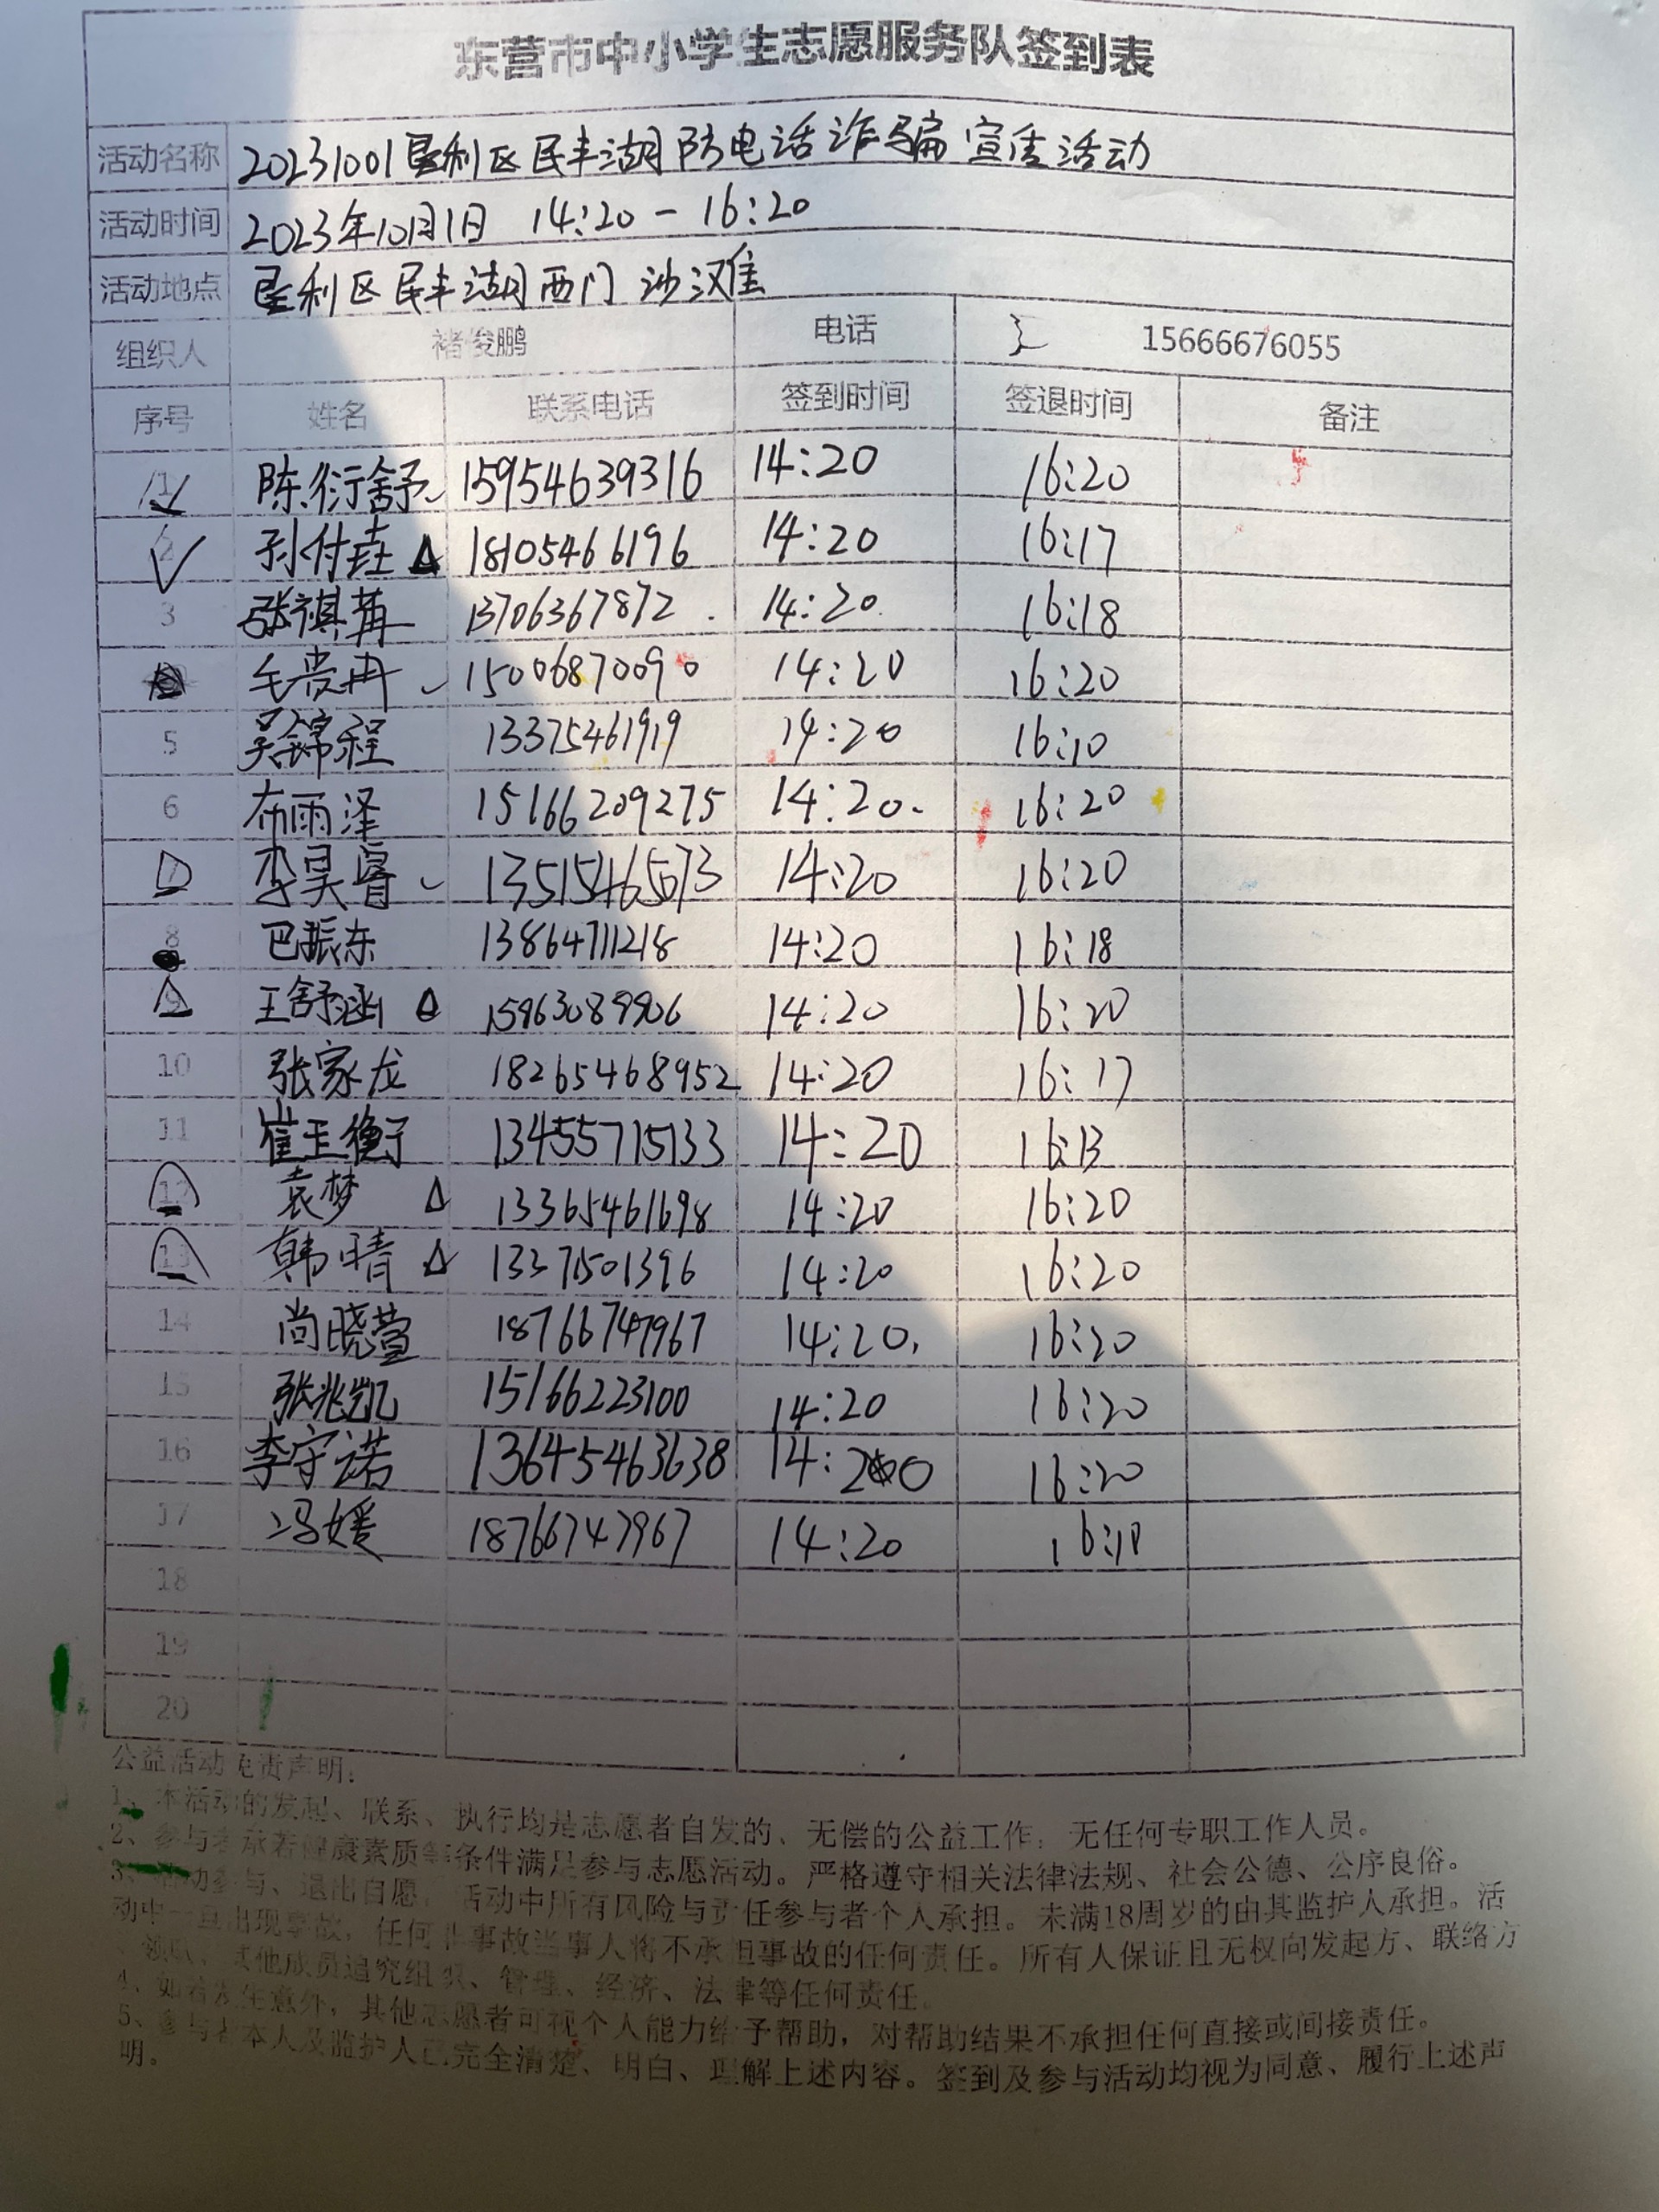 东营市中小学生志愿服务队签到表
活动名称 20231001垦利区民丰湖防电话诈骗宣传活动
活动时间 2023年10月1日 14:20-16:20
活动地点 垦利区民丰湖西门沙滩
组织人 褚俊鹏 电话 15666676055
序号 姓名 联系电话 签到时间 签退时间 备注
1 陈衍舒 15954639316 14:20 16:20
2 孙付垚 18105466196 14:20 16:17
3 张祺苒 13706367872 14:20 16:18
毛贵冉 15006870090 14:20 16:20
5 吴锦程 13375461919 14:20 16:10
6 布雨泽 15166209275 14:20 16:20
7 李昊睿 14:20 16:20
8 巴振东 13864711218 14:20 16:18
9 王舒涵 15963089906 14:20 16:20
10 张家龙 18265468952 14:20 16:17
11 崔玉衡 13455715133 14:20 16:13
12 袁梦 13365461698 14:20 16:20
13 韩晴 13371501396 14:20 16:20
14 尚晓萱 18766747967 14:20 16:20
15 张兆凯 15166223100 14:20 16:20
16 李守诺 13645463638 14:20 16:20
17 冯媛 18766747967 14:20
18
19
20
公益活动免责声明:
1、本活动的发起、联系、执行均是志愿者自发的、无偿的公益工作;无任何专职工作人员。
2、参与者承若健康素质等条件满足参与志愿活动。严格遵守相关法律法规、社会公德、公序良俗。
3、活动参与、退出自愿,活动中所有风险与责任参与者个人承担。未满18周岁的由其监护人承担。活
动中一旦出现事故,任何非事故当事人将不承担事故的任何责任。所有人保证且无权向发起方、联络方
、领队、其他成员追究组织、管理、经济、法律等任何责任。
4、如若发生意外,其他志愿者可视个人能力给予帮助,对帮助结果不承担任何直接或间接责任。
5、参与者本人及监护人已完全清楚、明白、理解上述内容。签到及参与活动均视为同意、履行上述声
明。